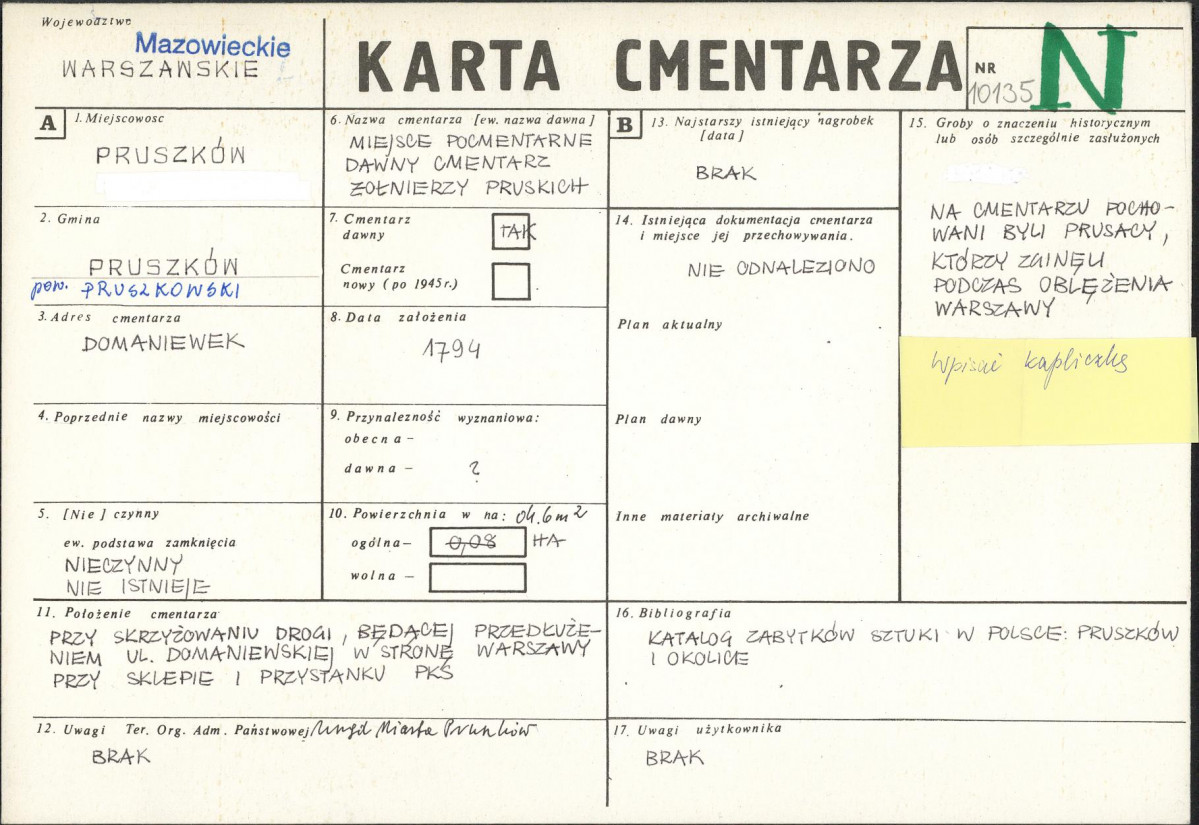 Województwo
Mazowieckie
WARSZAWSKIE
KARTA CMENTARZA
NR
10135
N
A
1. Miejscowosc
PRUSZKÓW
2. Gmina
PRUSZKÓW
pow. PRUSZKOWSKI
3. Adres cmentarza
DOMANIEWEK
4. Poprzednie nazwy miejscowości
5. [Nie] czynny
ew. podstawa zamknięcia
NIECZYNNY
NIE ISTNIEJE
6. Nazwa cmentarza [ew. nazwa dawna]
MIEJSCE POCMENTARNE
DAWNY CMENTARZ
ŻOŁNIERZY PRUSKICH
7. Cmentarz
dawny
TAK
Cmentarz
nowy (po 1945 r.)
8. Data założenia
1794
9. Przynalezność wyznaniowa:
obecna –
dawna – ?
10. Powierzchnia w ha: ok. 6 m2
ogólna – 0,08 HA
wolna –
B
13. Najstarszy istniejący nagrobek
[data]
BRAK
14. Istniejąca dokumentacja cmentarza
i miejsce jej przechowywania.
NIE ODNALEZIONO
Plan aktualny
Plan dawny
Inne materiały archiwalne
15. Groby o znaczeniu historycznym
lub osób szczególnie zasłużonych
NA CMENTARZU POCHO-
WANI BYLI PRUSACY,
KTÓRZY ZGINĘLI
PODCZAS OBLĘŻENIA
WARSZAWY
Wpisać kapliczkę
11. Położenie cmentarza
PRZY SKRZYŻOWANIU DROGI, BĘDĄCEJ PRZEDŁUŻE-
NIEM UL. DOMANIEWSKIEJ W STRONĘ WARSZAWY
PRZY SKLEPIE I PRZYSTANKU PKS
16. Bibliografia
KATALOG ZABYTKÓW SZTUKI W POLSCE: PRUSZKÓW
I OKOLICE
12. Uwagi Ter. Org. Adm. Państwowej Urząd Miasta Pruszków
BRAK
17. Uwagi użytkownika
BRAK